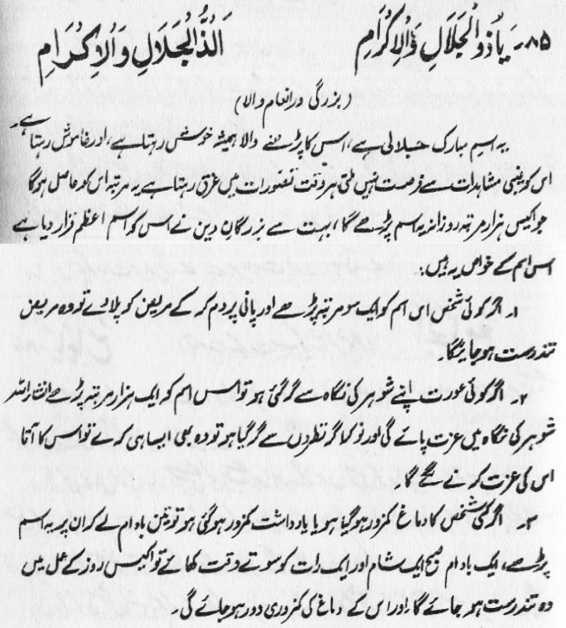 ۸۵۔ یَا ذُو الْجَلَالِ وَالْاِکْرَامِ اَلذُّ الْجَلَالِ وَالْاِکْرَامِ
(بزرگی ور انعام والا)
یہ اسم مبارک جلالی ہے، اس کا پڑھنے والا ہمیشہ خوش رہتا ہے، اور خاموش رہتا ہے۔
اس کو غیبی مشاہدات سے فرصت نہیں ملتی ہر وقت تصورات میں غرق رہتا ہے یہ مرتبہ اس کو حاصل ہوگا
جو اکیس ہزار مرتبہ روزانہ یہ اسم پڑھے گا، بہت سے بزرگان دین نے اس کو اسم اعظم قرار دیا ہے
اس اسم کے خواص یہ ہیں:
۱۔ اگر کوئی شخص اس اسم کو ایک سو مرتبہ پڑھے اور پانی پر دم کر کے مریض کو پلائے تو وہ مریض
تندرست ہو جائیگا۔
۲۔ اگر کوئی عورت اپنے شوہر کی نگاہ سے گر گئی ہو تو اس اسم کو ایک ہزار مرتبہ پڑھے انشاء اللہ
شوہر کی نگاہ میں عزت پائے گی اور نوکر اگر نظروں سے گر گیا ہو تو وہ بھی ایسا ہی کرے تو اس کا آقا
اس کی عزت کرنے لگے گا۔
۳۔ اگر کسی شخص کا دماغ کمزور ہو گیا ہو یا یادداشت کمزور ہو گئی ہو تو تین بادام لے کر ان پر یہ اسم
پڑھے، ایک بادام صبح ایک شام اور ایک رات کو سوتے وقت کھائے تو اکیس روز کے عمل میں
وہ تندرست ہو جائے گا، اور اس کے دماغ کی کمزوری دور ہو جائے گی۔